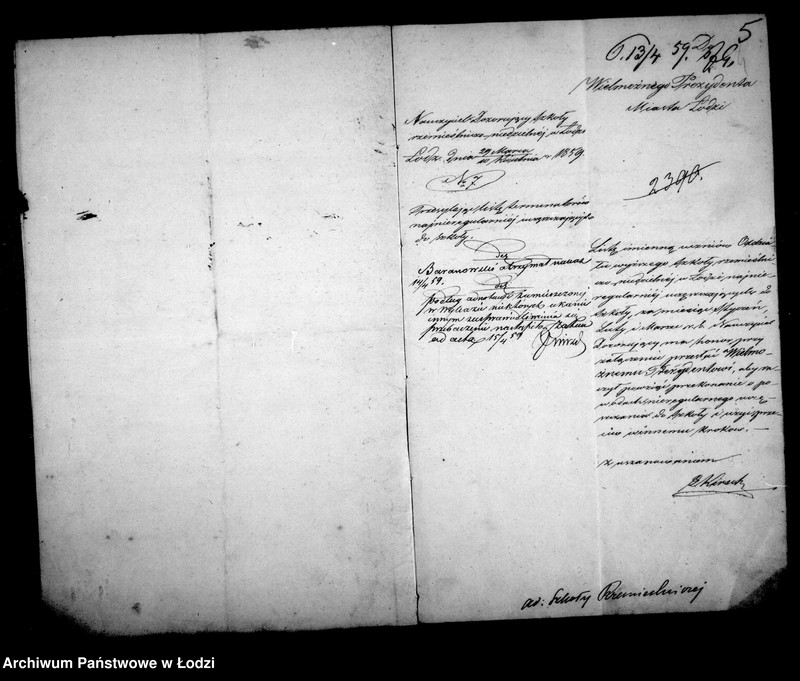 5
P. 13/4 59.
Wielmożnego Prezydenta
Miasta Łodzi
Nauczyciel Dozorujący Szkoły
rzemieślniczo niedzielnej w Łodzi
Łódź dnia 29 Marca / 10 Kwietnia r. 1859
No 7
2390.
Przesyła listę terminatorów
najnieregularniej uczęszczających
do szkoły.
Baranowski otrzymał
14/4 59.
podług adnotacji zamieszczonej
w wykazie niektórych ukarano
innym
ad acta 15/4 59
Listę imienną uczniów Oddzia-
łu wyższego Szkoły rzemieślni-
czo niedzielnej w Łodzi najnie-
regularniej uczęszczających do
Szkoły, za miesiąc Styczeń,
Luty i Marzec r. b. Nauczyciel
Dozorujący ma honor przy
załączeniu przesłać Wielmo-
żnemu Prezydentowi, aby ra-
czył powziąć przekonanie o po-
wodach nieregularnego uczę-
szczania do Szkoły i użyć prze-
ciw winnemu kroków. —
z uszanowaniem
ad: Szkoły Rzemieślniczej
Archiwum Państwowe w Łodzi